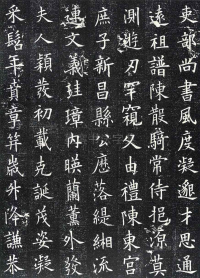 吏部尚書風度凝邈才思通
遠祖譜陳散騎常侍挹源莫
測遊刃罕窺父由禮陳東宮
庶子新昌縣公應落緹緗流
連文義珪璋內暎蘭薰外發
夫人穎發初載克誕茂姿凝
采髫年章笄歲外降謙恭